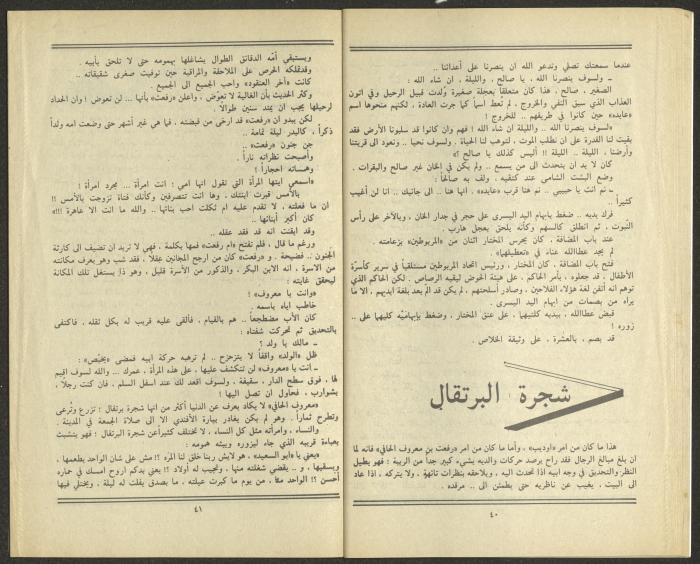 عندما سمعتك تصلي وتدعو الله ان ينصرنا على أعدائنا ..
ـ ولسوف ينصرنا الله ، يا صالح ، والليلة ، ان شاء الله :
الصغير ، صالح ، هذا كان متعلقاً بعجلة صغيرة ولدت قبيل الرحيل وفي اتون
العذاب الذي سبق النفي والخروج ، لم تعط اسماً كما جرت العادة ، لكنهم منحوها اسم
«عايده» حين كانوا في طريقهم .. للخروج !
«لسوف ينصرنا الله .. والليلة ان شاء الله ! فهم وان كانوا قد سلبونا الأرض فقد
بقيت لنا القدرة على ان نطلب الموت ، لتوهب لنا الحياة . ولسوف نحيا .. ونعود الى قريتنا
وأرضنا ، الليلة .. الليلة !! أليس كذلك يا صالح ؟»
كان لا بد ان يتحدث الى من يسمع .. ولم يكن في الخان غير صالح والبقرات .
وضع البشت الشامي عند كتفيه ، ولف به صالحاً :
ـ نم انت يا حبيبي .. نم هنا قرب «عايده» . انها هنا .. الى جانبك .. انا لن أغيب
كثيراً ..
فرك يديه .. ضغط بابهام اليد اليسرى على حجر في جدار الخان ، وبالآخر على رأس
النبوت ، ثم انطلق كالسهم وكأنه يلحق بمعجل هارب .
عند باب المضافة ، كان يحرس المختار اثنان من «المربوطين» بزعامته .
لم يجد عطاالله عناء في «تعطيلهما» .
فتح باب المضافة ، كان المختار ، ورئيس اتحاد المربوطين مستلقياً في سرير كأسرّة
الأطفال ، قد جعلوه ، بأمر الحاكم ، على هيئة الحوض ليقيه الرصاص . لكن الحاكم الذي
توهم انه أتقن لغة هؤلاء الفلاحين ، وصادر أسلحتهم ، لم يكن قد ألم بعد بلغة ايديهم ، الا ما
يراه من بصمات من ابهام اليد اليسرى .
قبض عطاالله ، بيديه كلتيهما ، على عنق المختار ، وضغط بإبهاميه كليهما على ..
زوره !
قد بصم ، بالعشرة ، على وثيقة الخلاص .
شجرة البرتقال
هذا ما كان من امر «اوديب» ، وأما ما كان من امر «رفعت بن معروف الحافي» فانه لما
ان بلغ مبالغ الرجال فقد راح يرصد حركات والديه بشيء كبير جداً من الريبة : فهو يطيل
النظر والتحديق في وجه ابيه اذا تحدث اليه . ويلاحقه بنظرات تائهة ، ولا يتركه ، اذا عاد
الى البيت ، يغيب عن ناظريه حتى يطمئن الى .. مرقده .
٤٠
ويستبقي أمه الدقائق الطوال يشاغلها بهمومه حتى لا تلحق بأبيه .
وقدتملكه الحرص على الملاحظة والمراقبة حين توفيت صغرى شقيقاته ..
كانت «آخر العنقود» وأحب الجميع الى الجميع .
وكثر الحديث بأن الغالية لا تعوّض ، واعلن «رفعت» بأنها ... لن تعوض ! وان الحداد
لرحيلها يجب ان يمتد سنين طوالاً .
لكن يبدو ان «رفعت» قد ارخى من قبضته ، فما هي غير أشهر حتى وضعت امه ولداً
ذكراً ، كالبدر ليلة تمامه ..
جن جنون «رفعت» ..
وأصبحت نظراته ناراً .
وهمساته احجاراً !
«أسمعي ايتها المرأة التي تقول انها امي ! انت امرأة ... مجرد امرأة !
بالأمس قبرت ابنتك ، وها انت تتصرفين وكأنك فتاة تزوجت بالأمس !!
ان ما فعلته ، لا تقدم عليه ام ثكلت احب بناتها .. والله ما انت الا عاهرة !!!»
كان أكبر أبنائها ..
وقد ايقنت انه قد فقد عقله ..
ورغم ما قال ، فلم تفتح «ام رفعت» فمها بكلمة ، فهي لا تريد ان تضيف الى كارثة
الجنون .. فضيحة . و«رفعت» كان من ارجح المجانين عقلاً ، فقد شب وهو يعرف مكانته
من الاسرة ، انه الابن البكر ، والذكور من الأسرة قليل ، وهو ذا يستغل تلك المكانة
ليحقق غايته :
«وانت يا معروف» !
خاطب اباه باسمه .
كان الأب مضطجعاً .. هم بالقيام ، فألقى عليه قريب له بكل ثقله ، فاكتفى
بالتحديق ثم تحركت شفتاه :
ـ مالك يا ولد ؟
ظل «الولد» واقفاً لا يتزحزح .. لم ترهبه حركة ابيه فمضى
ـ انت يا «معروف» لن تتكشف عليها ، على هذه المرأة ، عمرك ... والله لسوف اقيم
لها ، فوق سطح الدار ، سقيفة ، ولسوف اقعد لك عند اسفل السلم ، فان كنت رجلا ،
بشوارب ، فحاول ان تصل اليها !
«معروف الحافي» لا يكاد يعرف عن الدنيا أكثر من انها شجرة برتقال : تزرع وتُرعى
وتطرح ثماراً . وهو لم يكن يغادر بيارة الأفندي الا الى صلاة الجمعة في المدينة .
والنساء ، وامرأته مثل كل النساء ، لا تختلف كثيراً عن شجرة البرتقال : فهو يتشبث
بعباءة قريبه الذي جاء ليزوره ويبثه همومه :
«يعني يا «ابو السعيد» ، هو لايش ربنا خلق لنا المره ؟! مش على شان الواحد يطعمها ،
ويسقيها ، و .. يقضي شغلته منها ، وتجيب له أولاد ؟! يعني بدكم اروح امسك في حماره
أحسن ؟! الواحد منا ، من يوم ما كبرت عيلته ، ما بصدق يفلت له ليلة ، ويختلي فيها
٤١